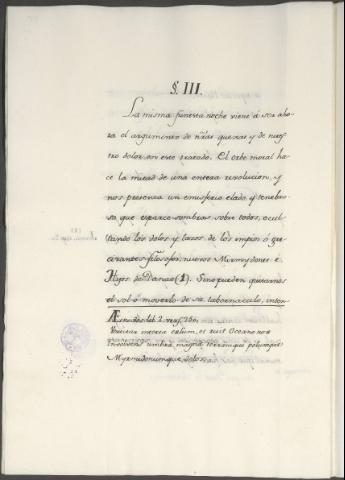 §. III.
La misma funesta noche viene á ser aho-
ra el argumento de nrãs quexas y de nues-
tro dolor en este tratado. El orbe moral ha-
ce la mitad de una entera revolucion, y
nos presenta un emisferio elado y tenebro-
so que esparce sombras sobre todos, ocul-
tando los dolos y lazos de los impios ó gre-
cizantes filosofos, nuevos Mirmydones é
Hijos de Danao (1). Si no pueden quitarnos
el sol ó moverlo de su tabernaculo, inten-
Æneidos lib. 2 vers. 250.
Vertitur interea cælum, et ruit Oceano nox
Involvens umbra magna terramque polumque
Myrmidonumque dolos.